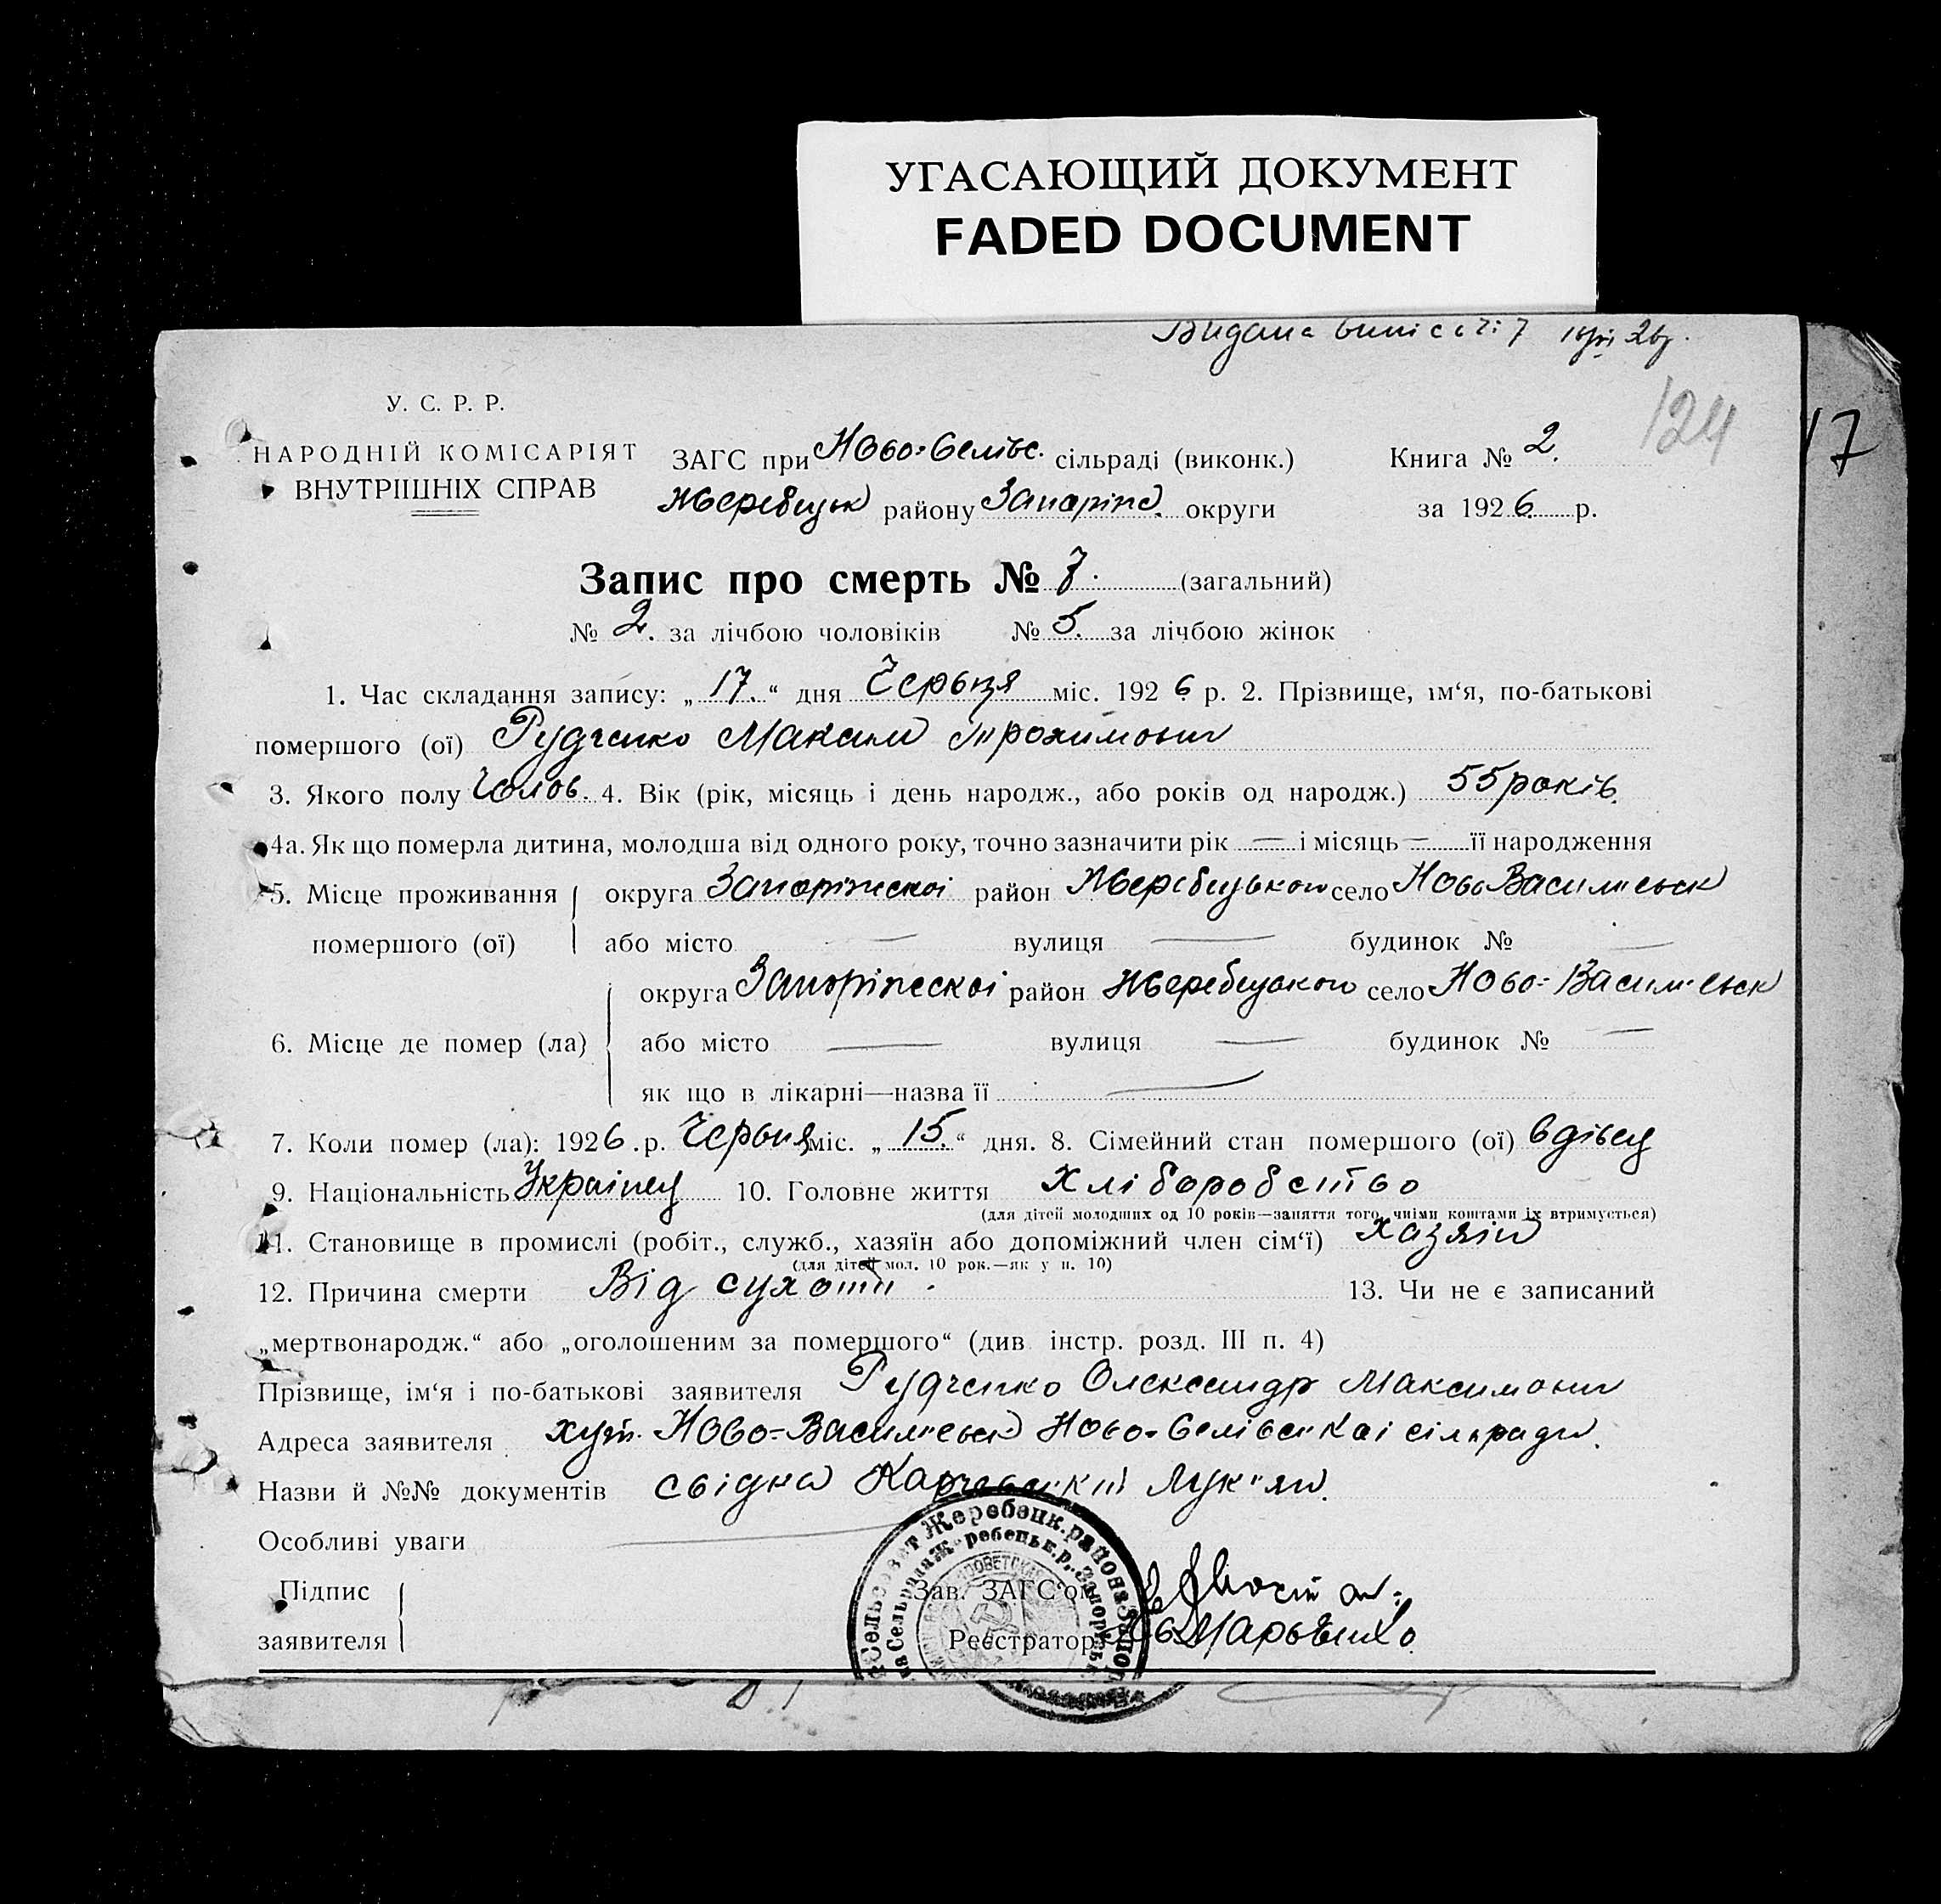 УГАСАЮЩИЙ ДОКУМЕНТ
FADED DOCUMENT
Видана
124
17
У. С. Р. Р.
НАРОДНІЙ КОМІСАРІЯТ
ВНУТРІШНІХ СПРАВ
ЗАГС при Ново-Селівс. сільраді (виконк.)
Книга № 2.
Жеребецьк району Запоріж. округи
за 1926 р.
Запис про смерть № 7. (загальний)
№ 2. за лічбою чоловіків № 5. за лічбою жінок
1. Час складання запису: „17.“ дня Червця міс. 1926 р. 2. Прізвище, ім‘я, по-батькові
помершого (ої) Рудченко Максим Трохимович
3. Якого полу Чолов. 4. Вік (рік, місяць і день народж., або років од народж.) 55 років.
4а. Як що померла дитина, молодша від одного року, точно зазначити рік — і місяць — її народження
5. Місце проживання помершого (ої)
округа Запоріжскої район Жеребецького село Ново Васил'євск
або місто — вулиця — будинок № —
6. Місце де помер (ла)
округа Запоріжескої район Жеребецького село Ново-Васил'євск
або місто — вулиця — будинок № —
як що в лікарні—назва її —
7. Коли помер (ла): 1926 р. Червня міс. „15.“ дня. 8. Сімейний стан помершого (ої) вдівец
9. Національність Украінец 10. Головне життя Хліборобство
(для дітей молодших од 10 років—заняття того, чиїми коштами їх втримується)
11. Становище в промислі (робіт., служб., хазяїн або допоміжний член сім‘ї) хазяін
(для дітей мол. 10 рок.—як у п. 10)
12. Причина смерти Від сухоти. 13. Чи не є записаний
„мертвонародж.“ або „оголошеним за помершого“ (див інстр. розд. III п. 4)
Прізвище, ім‘я і по-батькові заявителя Рудченко Олександр Максимович
Адреса заявителя хут. Ново-Васил'євск Ново-Селівської сільради.
Назви й №№ документів свідки Лук'ян.
Особливі уваги —
Підпис
заявителя
Зав. ЗАГС‘ом
Реєстратор
Сельсовет Жеребецк. района Запор